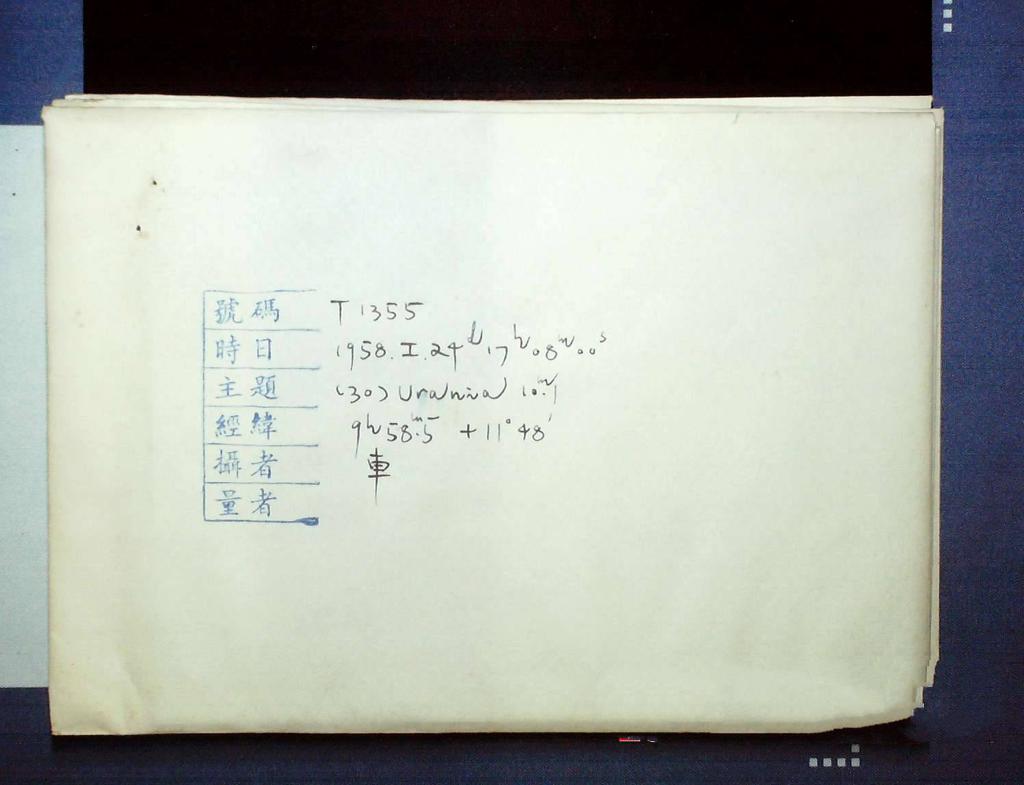 號碼 T 1355
時日 1958. I. 24ᵈ 17ʰ 08ᵐ 00ˢ
主題 (30) Urania 10ᵐ.1
經緯 9ʰ 58ᵐ.5 +11°48′
攝者 車
量者